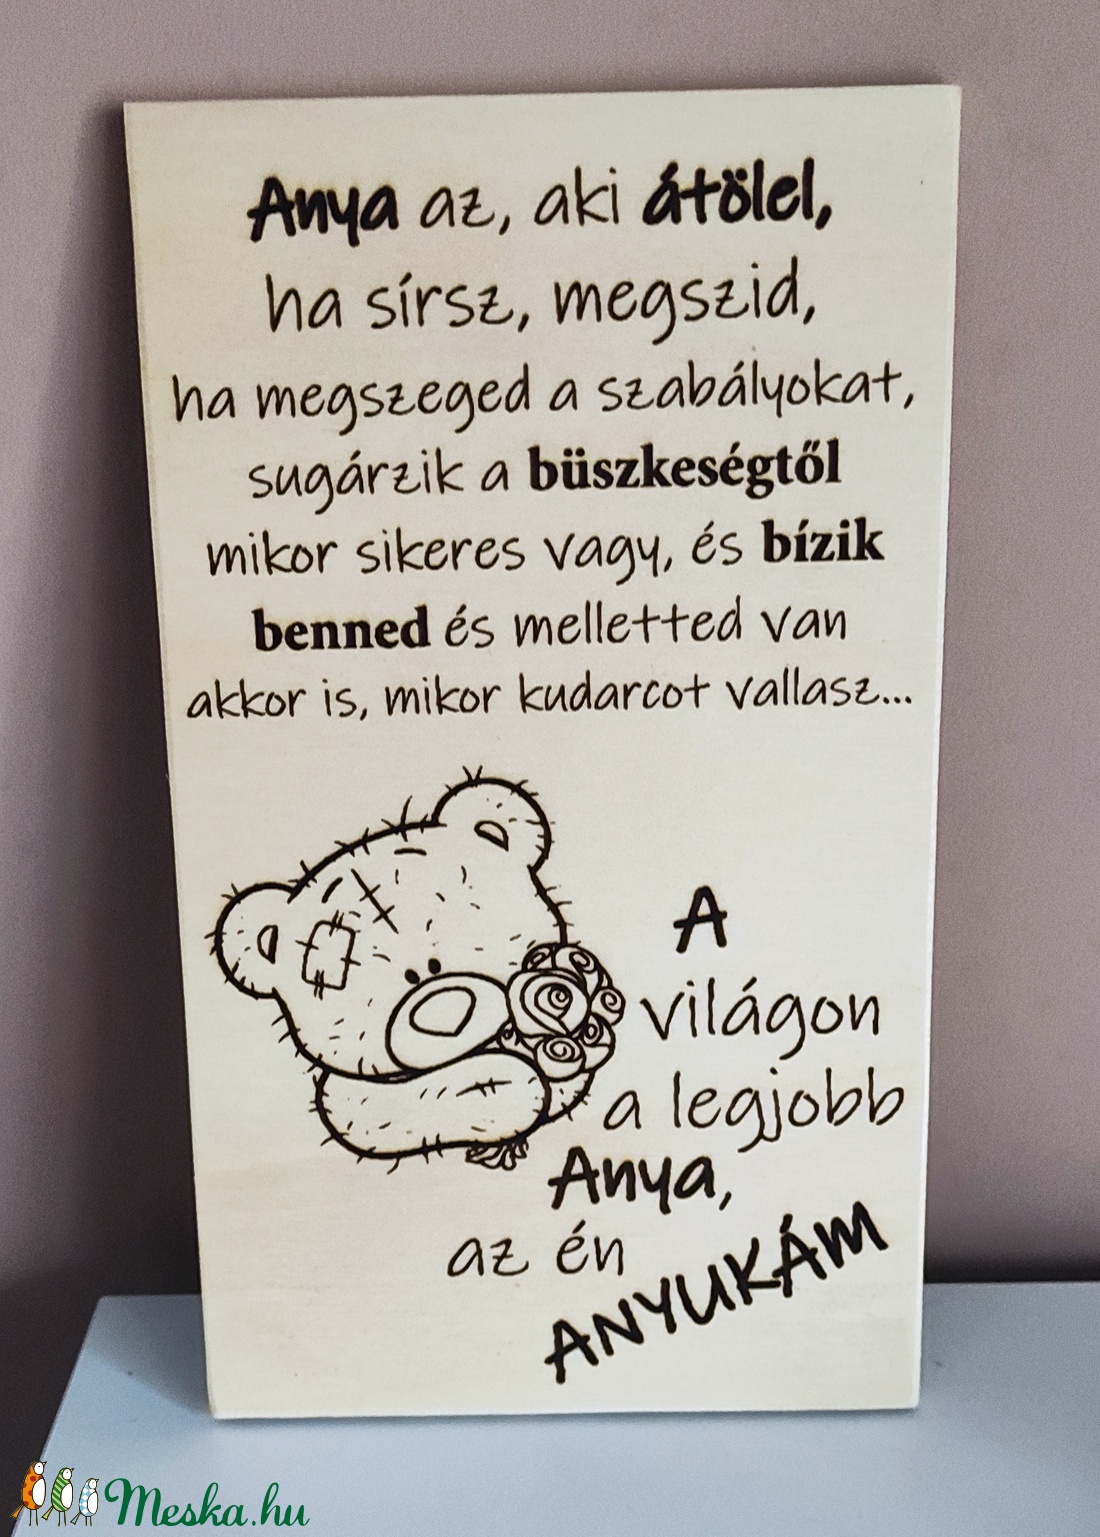 Anya az, aki átölel,
ha sírsz, megszid,
ha megszeged a szabályokat,
sugárzik a büszkeségtől
mikor sikeres vagy, és bízik
benned és melletted van
akkor is, mikor kudarcot vallasz...
A
világon
a legjobb
Anya,
az én
ANYUKÁM
Meska.hu